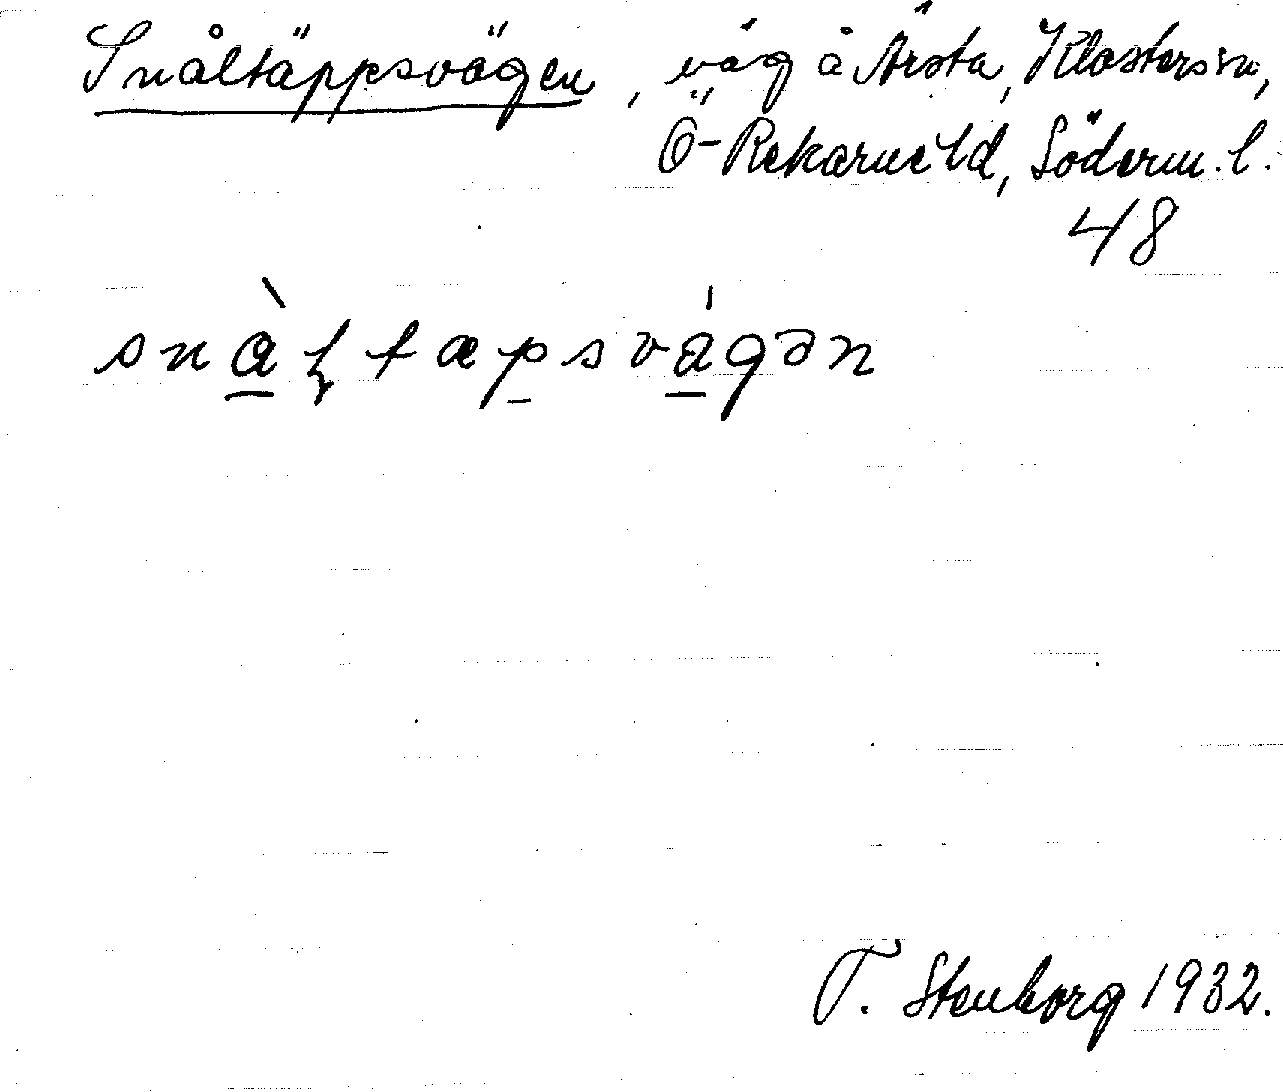 Snåltäppsvägen, väg å Årsta, Klosters sn,
Ö-Rekarne hd, Söderm. l.
48
snàɽtæpsvágən
T. Stenborg 1932.